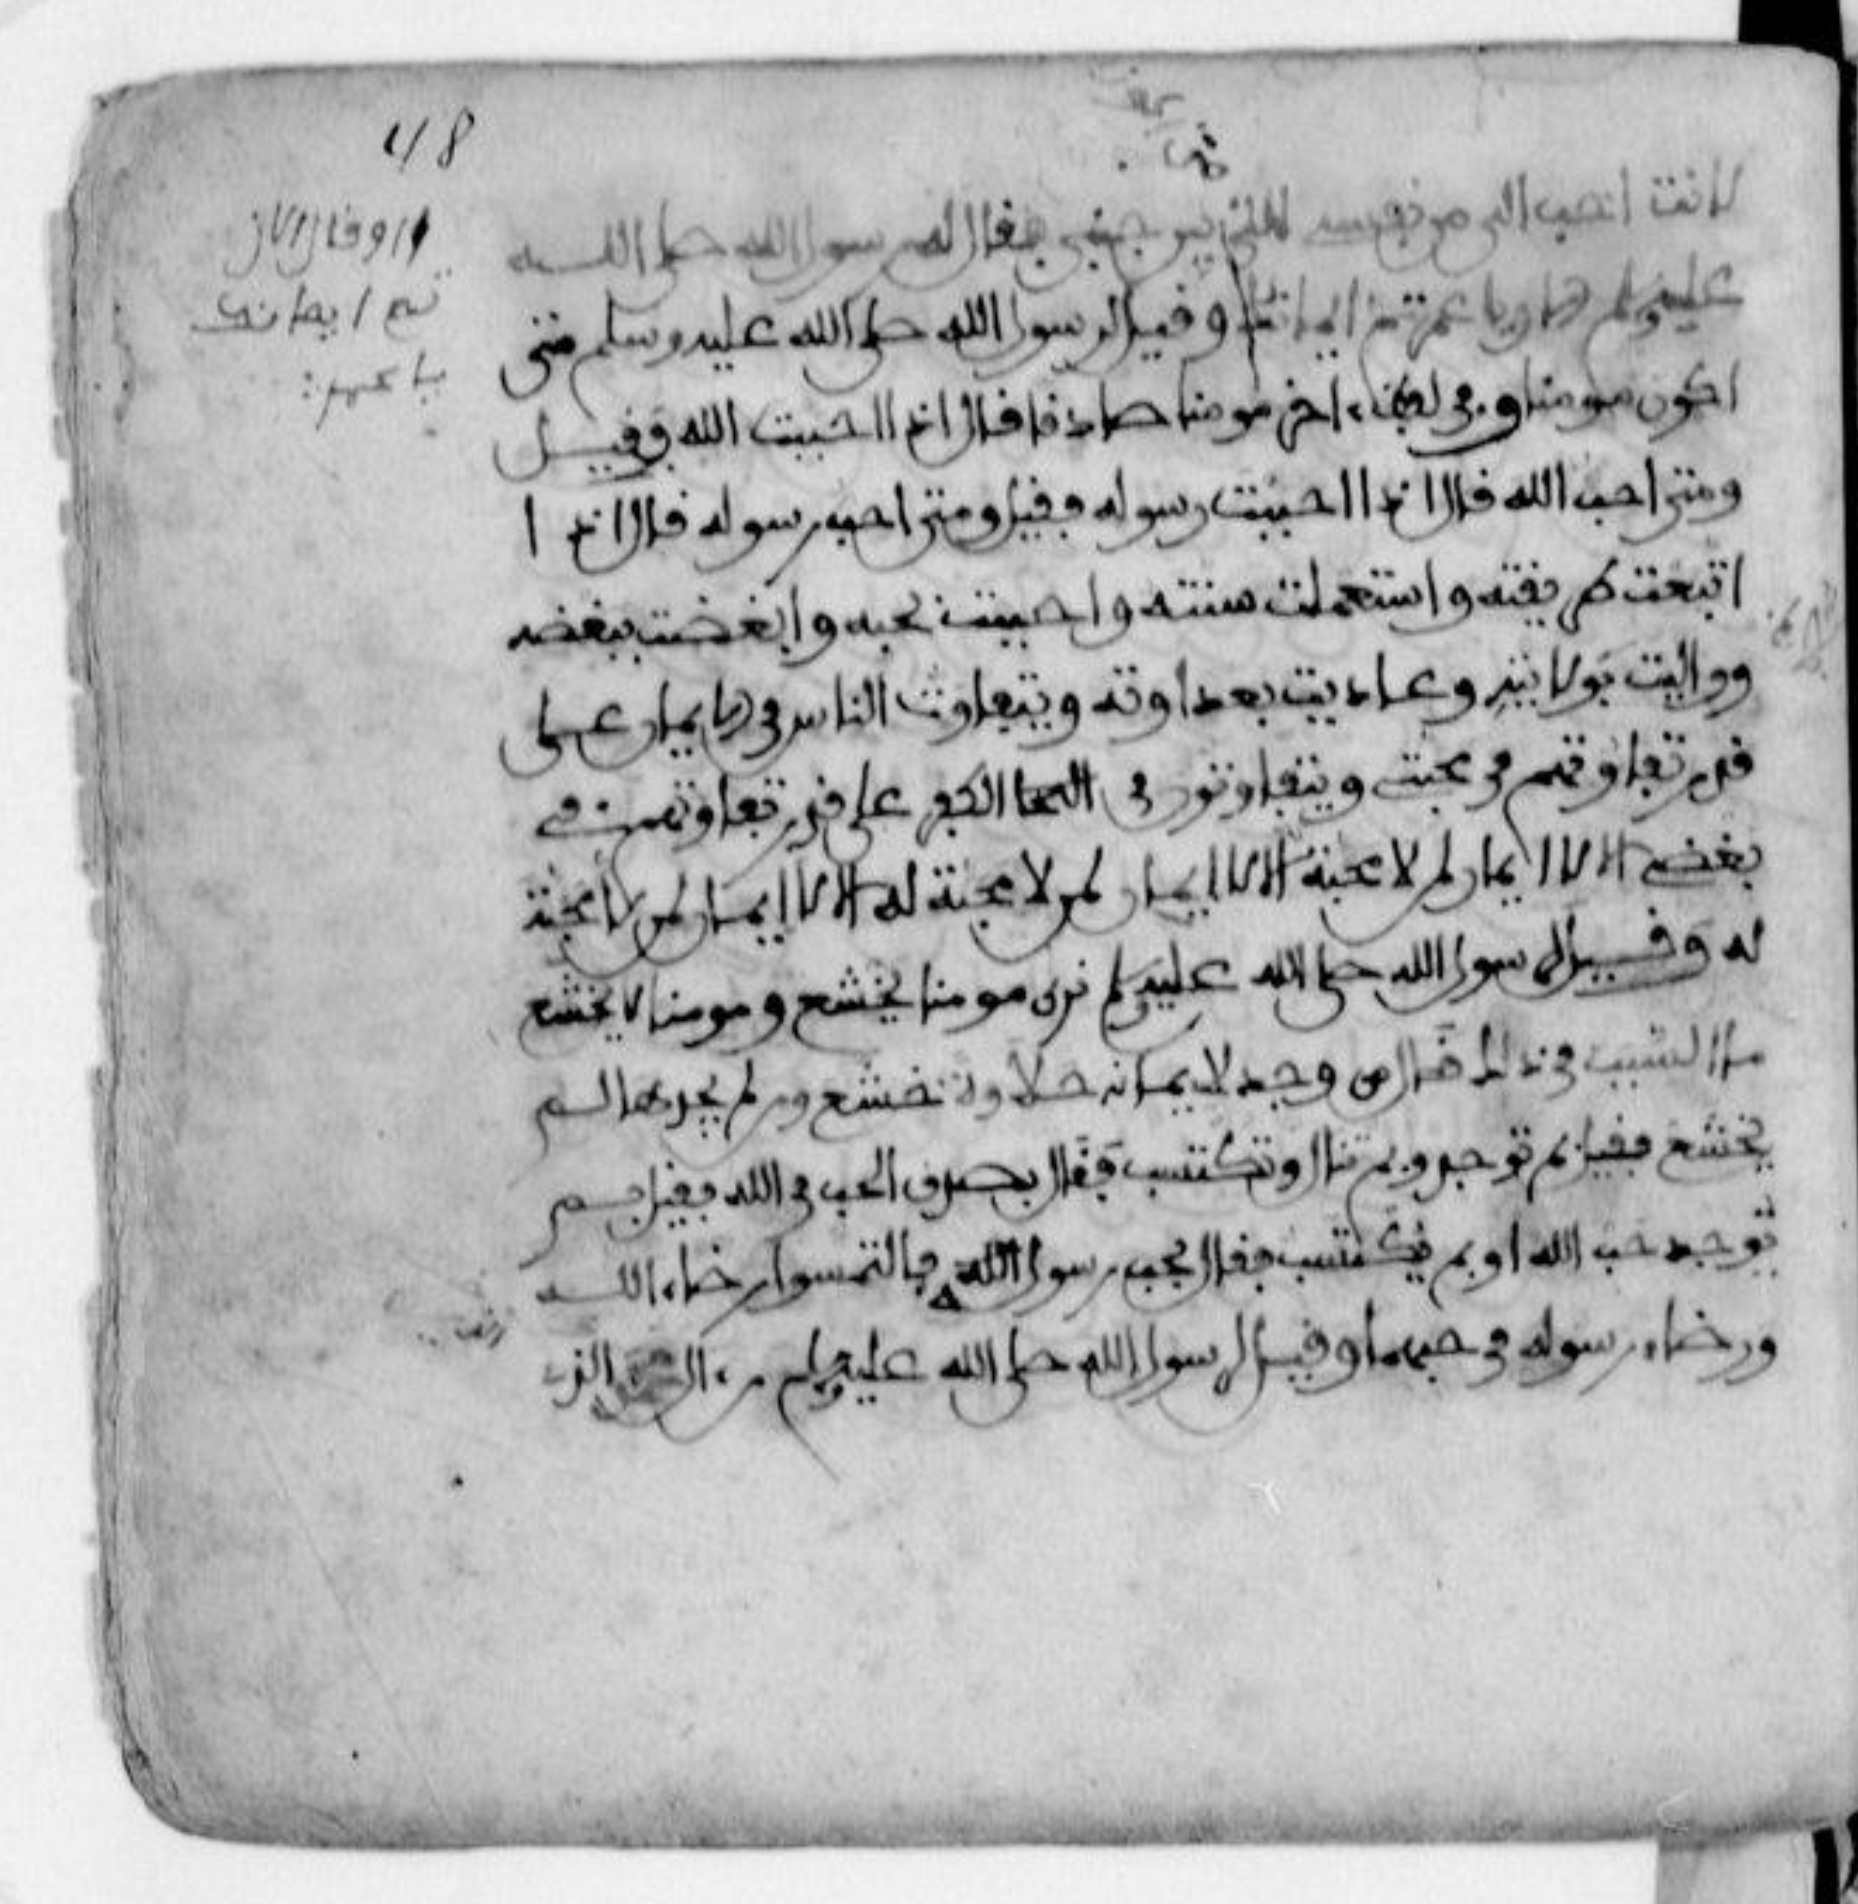 48
لانت احب الي من نفسي التي بين جنبي فقال له رسول الله صلى الله
عليه وسلم الان يا عمر تم ايمانك وقيل لرسول الله صلى الله عليه وسلم متى
اكون مومنا وفي لفظ اخر مومنا صادقا قال اذا احببت الله وقيل
ومتى احب الله قال اذا احببت رسوله فقيل ومتى احب رسوله قال اذا
اتبعت طريقته واستعملت سنته واحببت بحبه وابغضت ببغضه
وواليت بولايته وعاديت بعداوته ويتفاوت الناس في الايمان على
قدر تفاوتهم في محبتي ويتفاوتون في الكفر على قدر تفاوتهم في
بغضي الا لا ايمان لمن لا محبة له الا لا ايمان لمن لا محبة له الا لا ايمان لمن لا محبة
له وقيل لرسول الله صلى الله عليه وسلم نرى مومنا يخشع ومومنا لا يخشع
ما السبب في ذالك فقال من وجد لايمانه حلاوة خشع ومن لم يجدها لم
يخشع فقيل بم توجد وبم تنال وتكتسب فقال بصدق الحب في الله فقيل بم
يوجد حب الله او بم يكتسب فقال بحب رسول الله فالتمسوا رضاء الله
ورضاء رسوله في حبهما وقيل لرسول الله صلى الله عليه وسلم من ال الذين
تم ايمانك
يا عمر